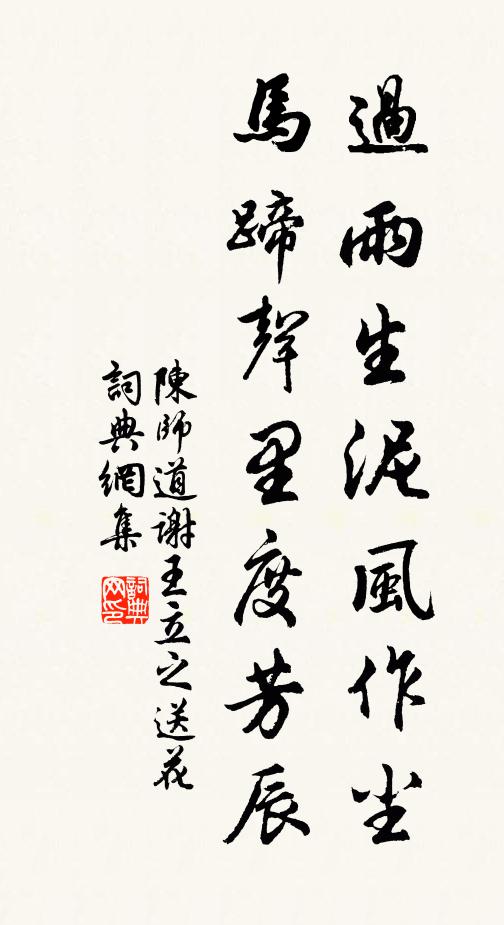 過雨生泥風作尘
馬蹄聲里度芳辰
陳師道謝王立之送花
詞典網集
詞典网印